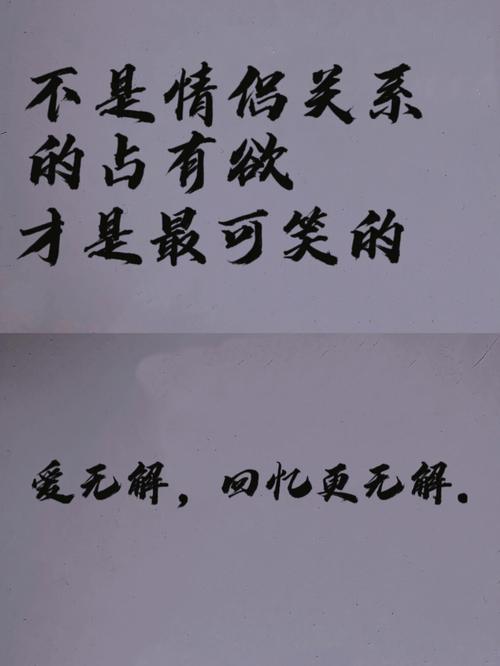 不是情侣关系
的占有欲
才是最可笑的
爱无解，回忆更无解.